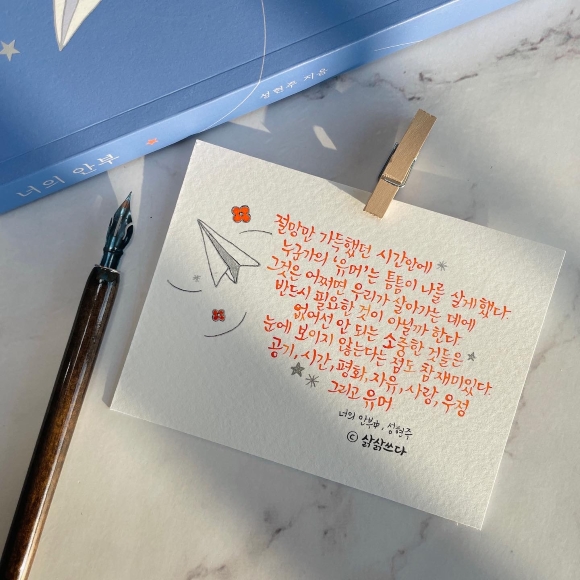 너의 안부
성현주 지음
절망만 가득했던 시간안에
누군가의 '유머'는 틈틈이 나를 살게했다
그것은 어쩌면 우리가 살아가는 데에
반드시 필요한 것이 아닐까 한다
없어선 안 되는 소중한 것들은
눈에 보이지 않는다는 점도 참 재미있다.
공기, 시간, 평화, 자유, 사랑, 우정
그리고 유머
너의 안부中, 성현주
© 삶삶쓰다